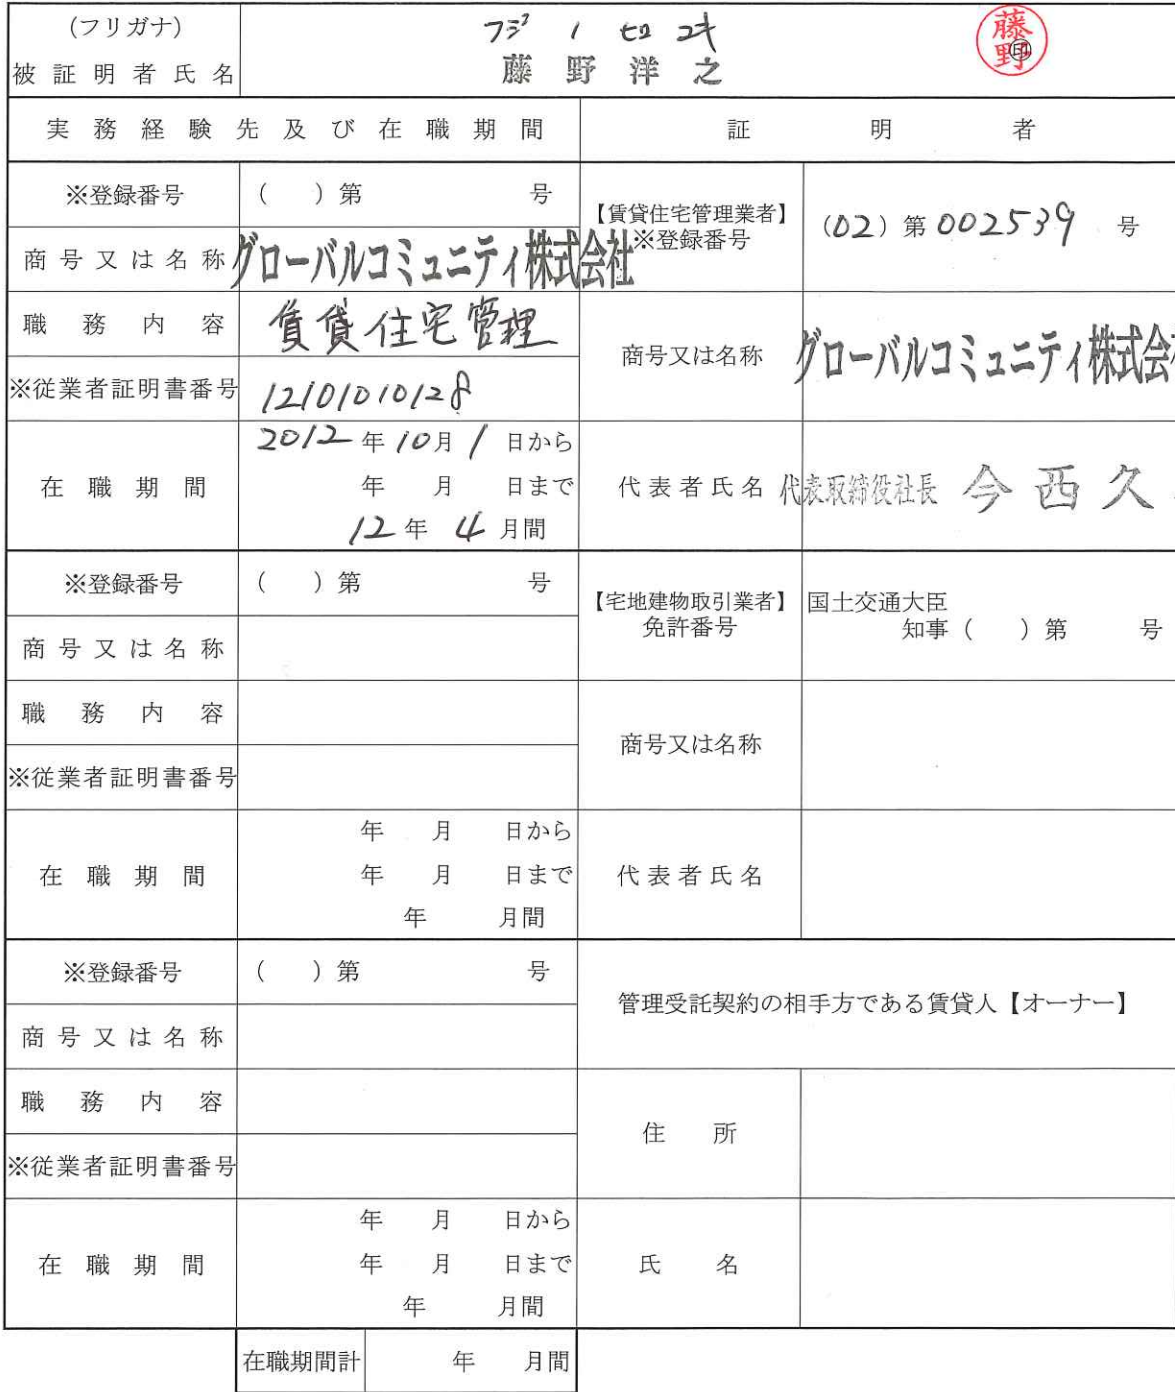 (フリガナ) フジノ ヒロユキ
被証明者氏名 藤野洋之 藤野 ㊞
実務経験先及び在職期間 証明者
※登録番号 ( )第 号
商号又は名称 グローバルコミュニティ株式会社
職務内容 賃貸住宅管理
※従業者証明書番号 12101010128
在職期間 2012年10月1日から
年 月 日まで
12年 4月間
【賃貸住宅管理業者】
※登録番号 (02)第002539 号
商号又は名称 グローバルコミュニティ株式会
代表者氏名 代表取締役社長 今西久
※登録番号 ( )第 号
商号又は名称
職務内容
※従業者証明書番号
在職期間 年 月 日から
年 月 日まで
年 月間
【宅地建物取引業者】
免許番号
国土交通大臣
知事( )第 号
商号又は名称
代表者氏名
※登録番号 ( )第 号
商号又は名称
職務内容
※従業者証明書番号
在職期間 年 月 日から
年 月 日まで
年 月間
管理受託契約の相手方である賃貸人【オーナー】
住所
氏名
在職期間計 年 月間